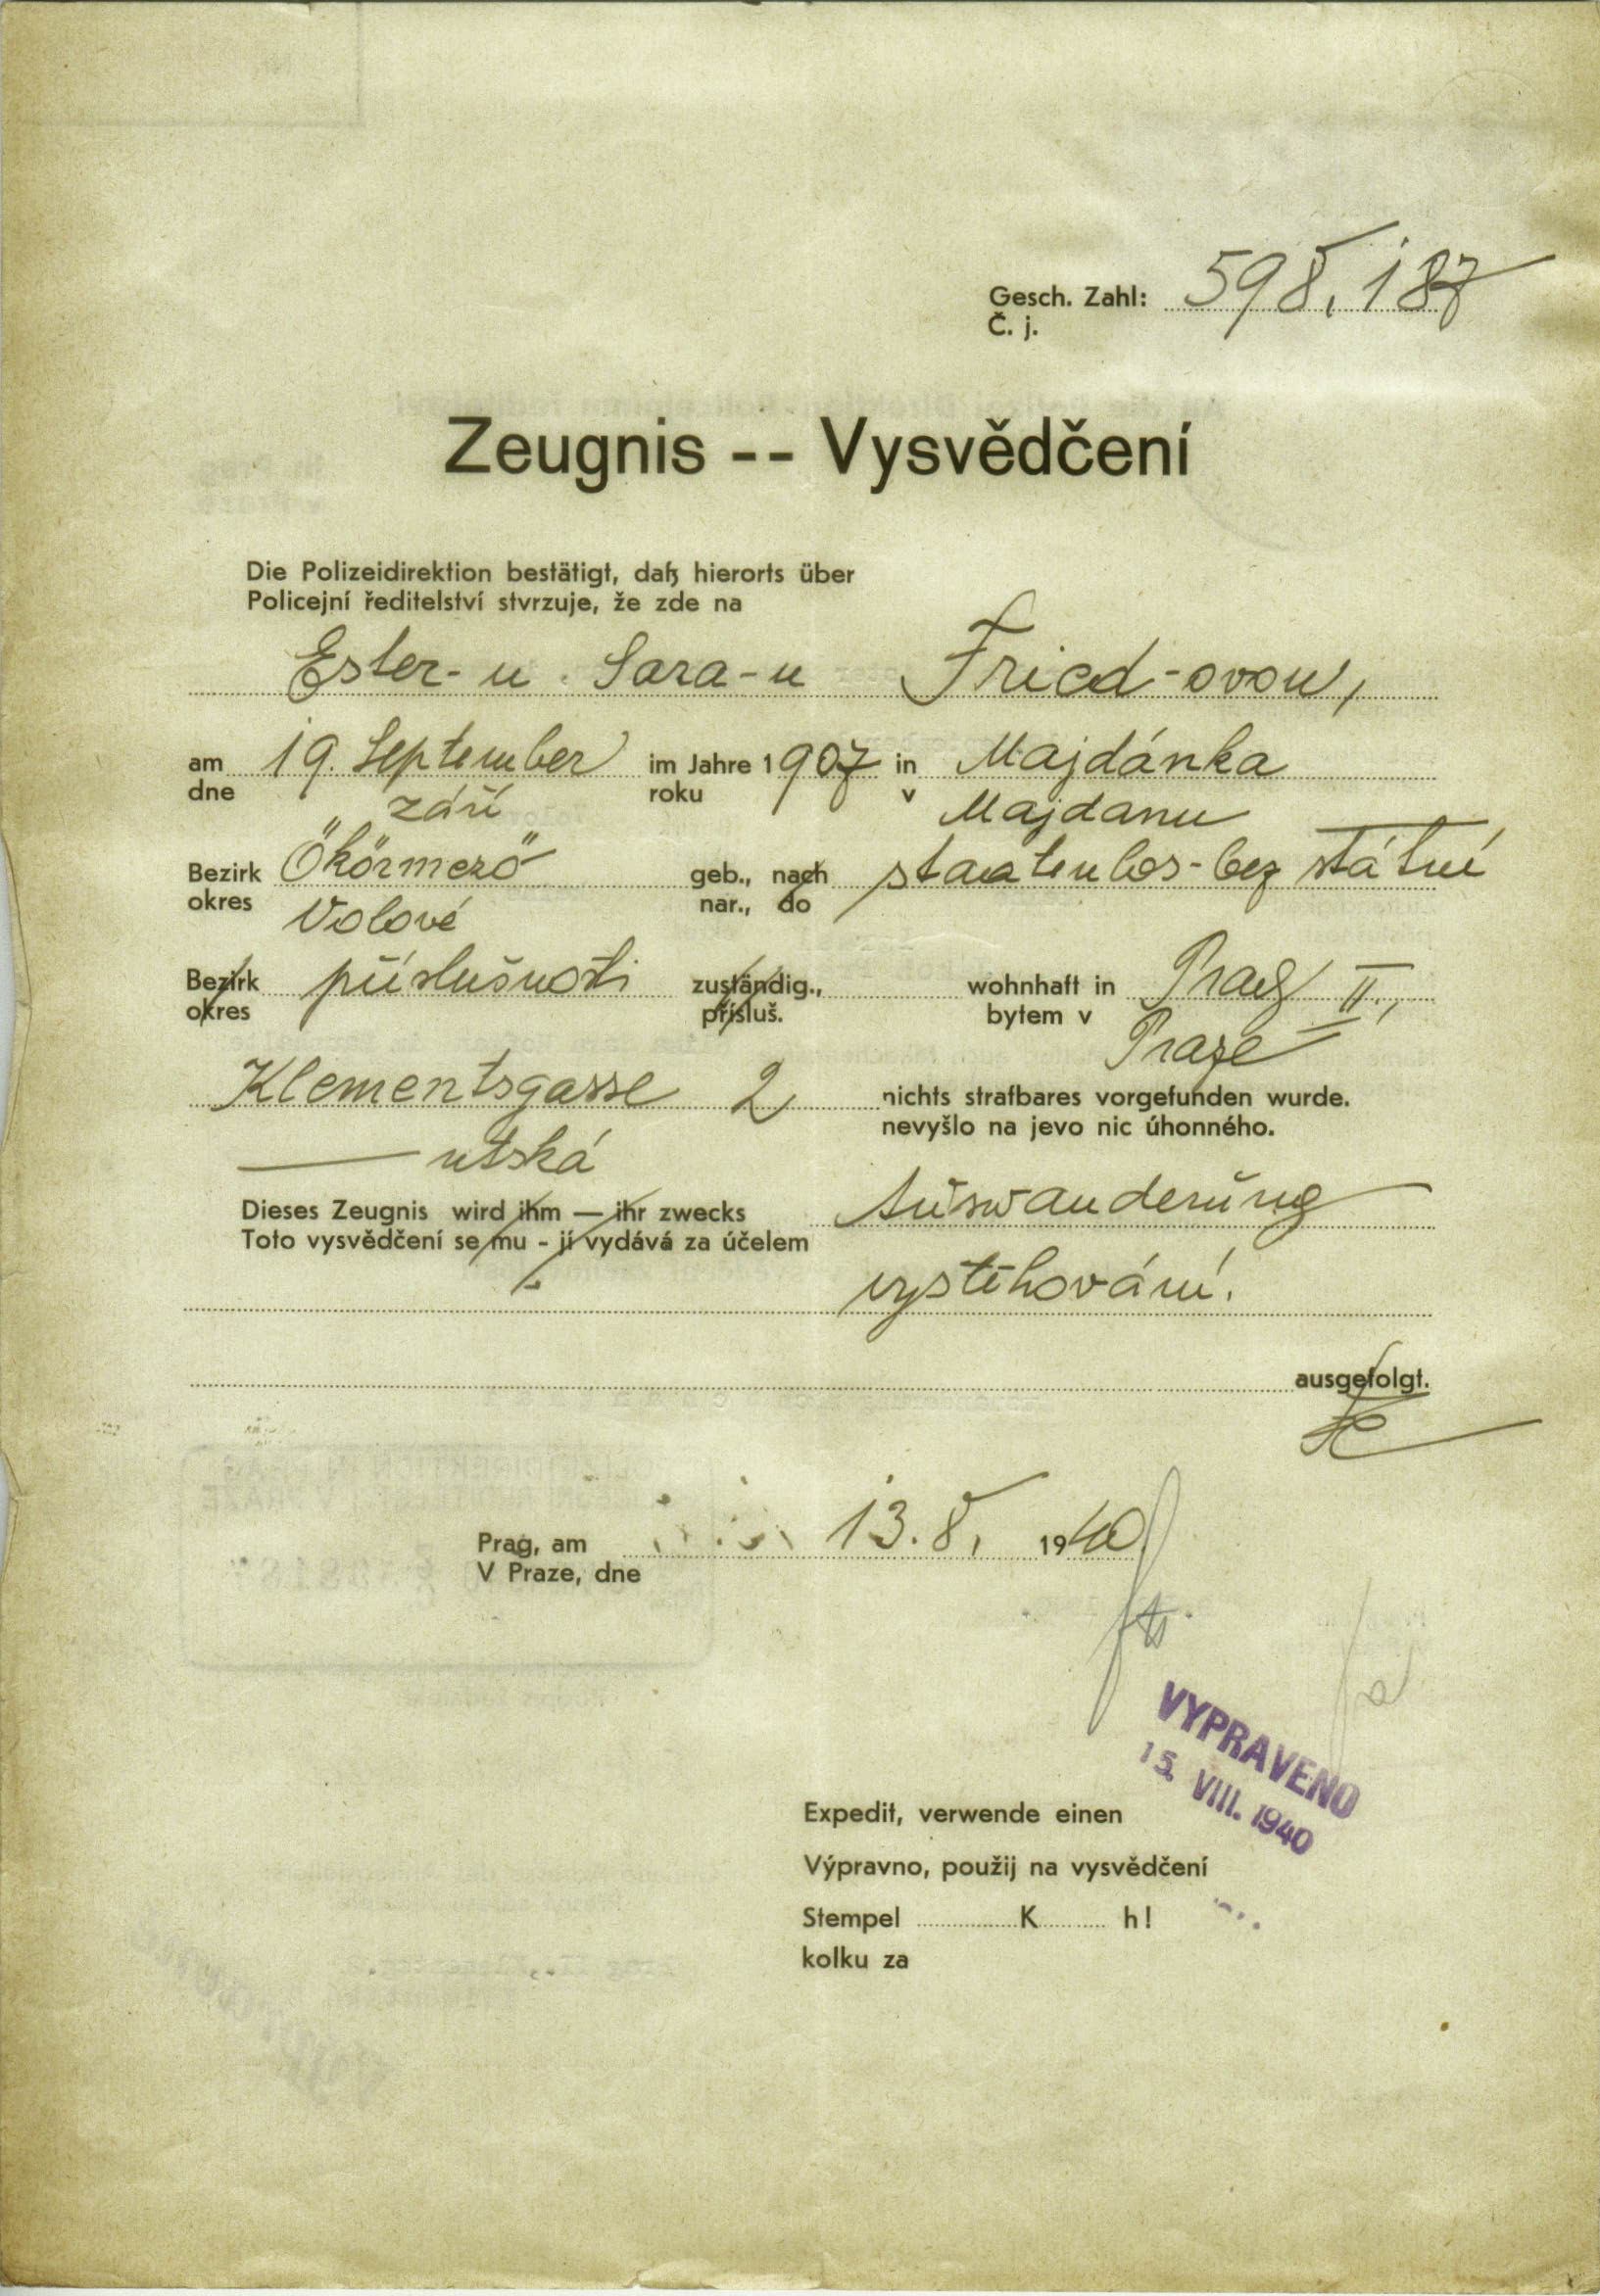 Gesch. Zahl: 598.187
Č. j.
Zeugnis -- Vysvědčení
Die Polizeidirektion bestätigt, daß hierorts über
Policejní ředitelství stvrzuje, že zde na
Ester-u Sara-u Fried-ovou,
am 19. September im Jahre 1907 in Majdánka
dne září roku v Majdanu
Bezirk Ökörmező geb., nach staatenlos-bez státní
okres Volové nar., do
Bezirk příslušnosti zuständig., wohnhaft in Prag II.,
okres přísluš. bytem v Praze
Klementsgasse 2 nichts strafbares vorgefunden wurde.
nevyšlo na jevo nic úhonného.
— ntská
Dieses Zeugnis wird ihm — ihr zwecks Auswanderung
Toto vysvědčení se mu - jí vydává za účelem
vystěhování.
ausgefolgt.
Prag, am 13.8. 1940.
V Praze, dne
VYPRAVENO
15. VIII. 1940
Expedit, verwende einen
Výpravno, použij na vysvědčení
Stempel K h!
kolku za